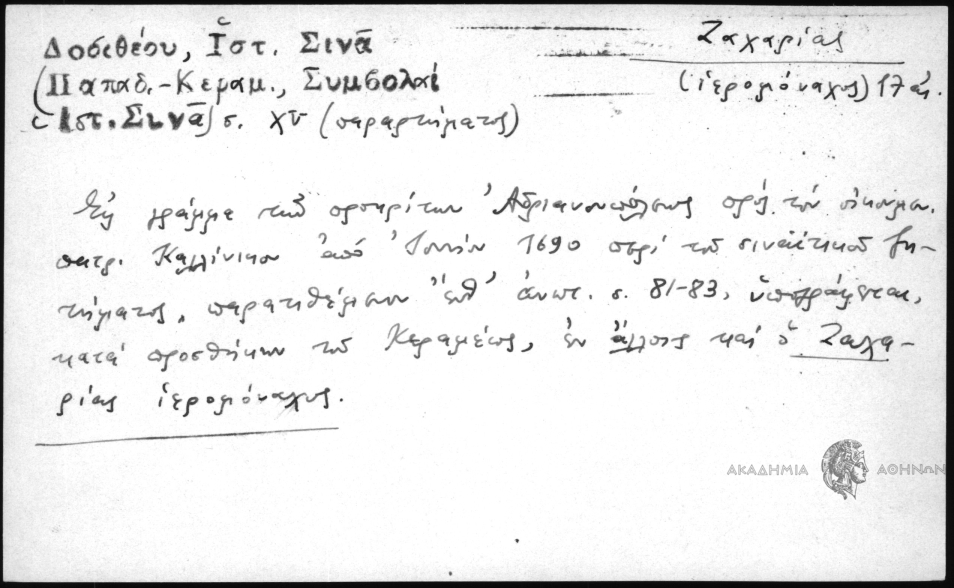 Δοσιθέου, Ἱστ. Σινᾶ
(Παπαδ.-Κεραμ., Συμβολαί
Ἱστ. Σινᾶ) σ. XV (παραρτήματος)
Ζαχαρίας
(ἱερομόναχος) 17 αἰ.
Εἰς γράμμα τῶν προκρίτων Ἀδριανουπόλεως πρός τόν οἰκουμ.
πατρ. Καλλίνικον ἀπό Ἰουνίου 1690 περί τοῦ σιναϊτικοῦ ζη-
τήματος, παρατιθέμενον ἐν ἀνωτ. σ. 81-83, ὑπογράφεται,
κατά προσθήκην τοῦ Κεραμέως, ἐν ἄλλοις καί ὁ Ζαχα-
ρίας ἱερομόναχος.
ΑΚΑΔΗΜΙΑ ΑΘΗΝΩΝ